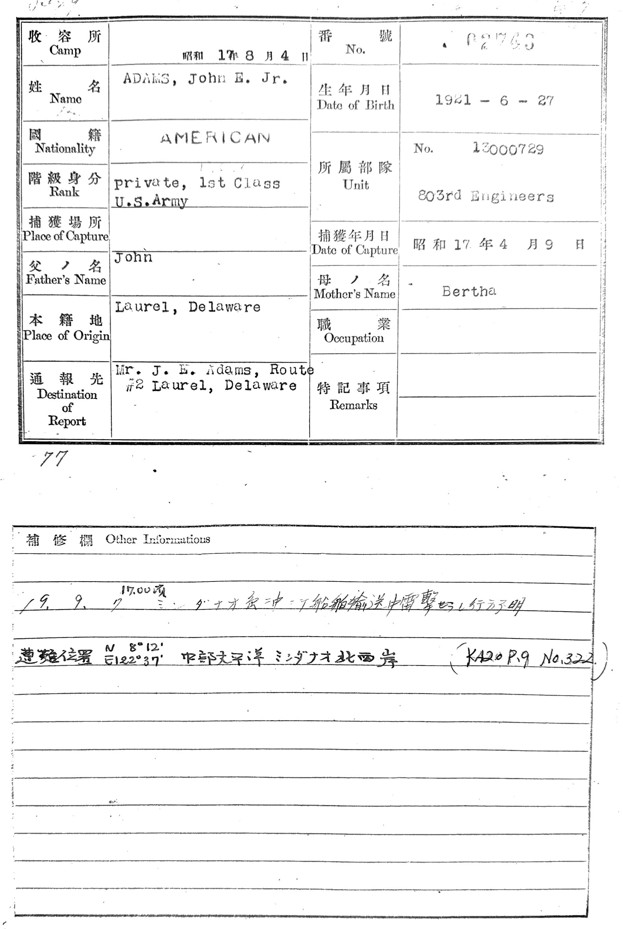 收容所
Camp
昭和 17年 8 月 4 日
番號
No.
姓名
Name
ADAMS, John E. Jr.
生年月日
Date of Birth
1921 - 6 - 27
國籍
Nationality
AMERICAN
所屬部隊
Unit
No. 13000729
803rd Engineers
階級身分
Rank
private, 1st Class
U.S.Army
捕獲場所
Place of Capture
捕獲年月日
Date of Capture
昭和 17 年 4 月 9 日
父ノ名
Father's Name
John
母ノ名
Mother's Name
Bertha
本籍地
Place of Origin
Laurel, Delaware
職業
Occupation
通報先
Destination
of
Report
Mr. J. E. Adams, Route
#2 Laurel, Delaware
特記事項
Remarks
77
補修欄 Other Informations
17.00頃
19. 9. 7 ミンダナオ島沖ニテ船舶輸送中雷撃セラレ行方不明
遭難位置 N 8°12′ E122°37′ 中部太平洋 ミンダナオ北西岸 (KA20 P.9 No.322)